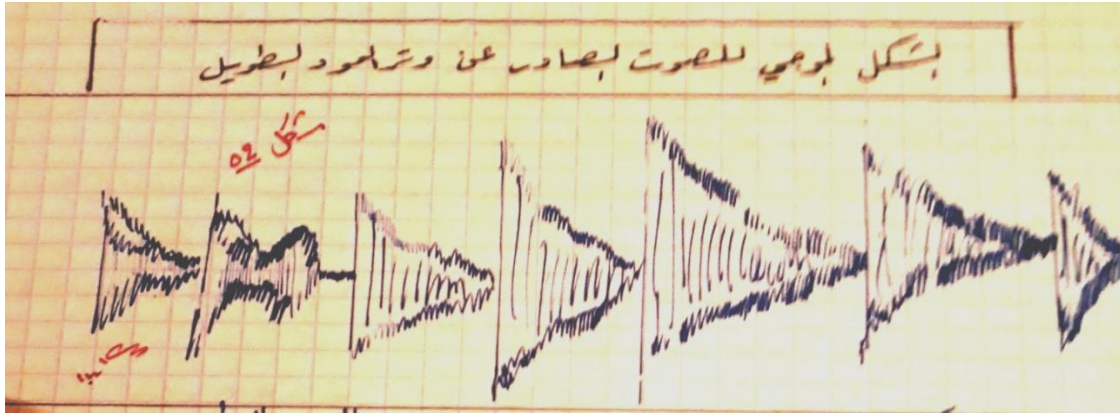 الشكل الموجي للصوت الصادر عن وتر العود الطويل
شكل ٥٩